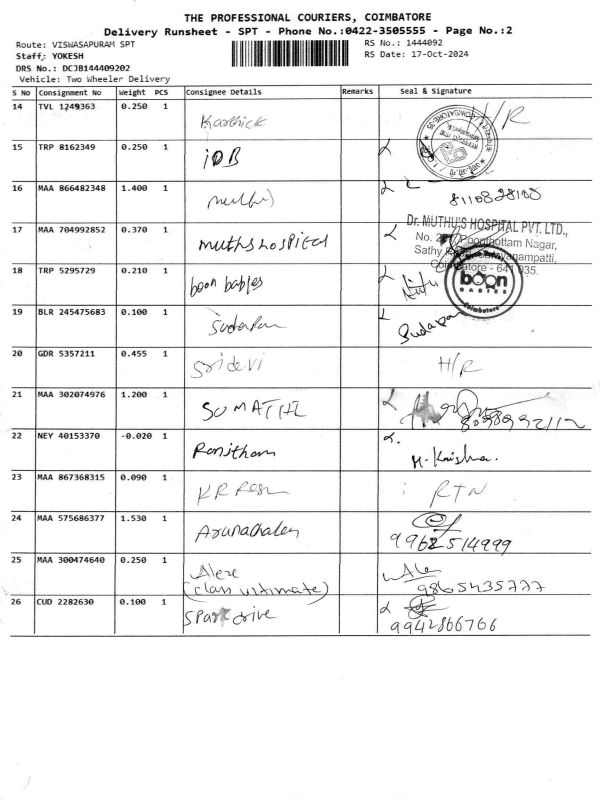 THE PROFESSIONAL COURIERS, COIMBATORE
Delivery Runsheet - SPT - Phone No.:0422-3505555 - Page No.:2
Route: VISWASAPURAM SPT RS No.: 1444092
Staff: YOKESH RS Date: 17-Oct-2024
DRS No.: DCJB144409202
Vehicle: Two Wheeler Delivery
S No Consignment No Weight PCS Consignee Details Remarks Seal & Signature
14 TVL 1249363 0.250 1 Karthick H/R
15 TRP 8162349 0.250 1 IOB
16 MAA 866482348 1.400 1 muthu
17 MAA 704992852 0.370 1 muths HOSPITAL
Dr. MUTHU'S HOSPITAL PVT. LTD.,
Poonthottam Nagar,
Sathy
Coimbatore - 641 035.
18 TRP 5295729 0.210 1 boon babies
boon
BABIES
Coimbatore
19 BLR 245475683 0.100 1 Sudapan
20 GDR 5357211 0.455 1 Sridevi H/R
21 MAA 302074976 1.200 1 SUMATHI
22 NEY 40153370 -0.020 1 Ranitham M. Krishna.
23 MAA 867368315 0.090 1 KR RTN
24 MAA 575686377 1.530 1 Arunachalam 9962514999
25 MAA 300474640 0.250 1
(class ultimate) 9865435777
26 CUD 2282630 0.100 1 Spark drive
9942866766